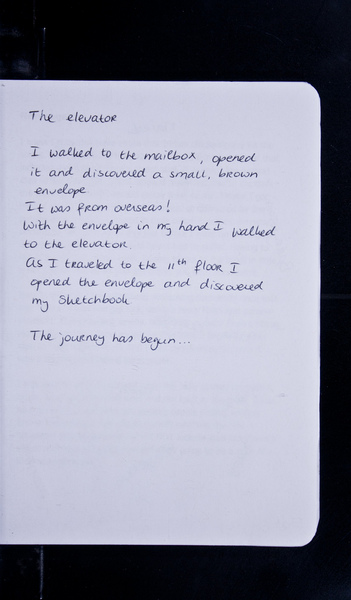 The elevator
I walked to the mailbox, opened
it and discovered a small, brown
envelope
It was from overseas!
With the envelope in my hand I walked
to the elevator.
As I traveled to the 11th floor I
opened the envelope and discovered
my Sketchbook
The journey has begun...